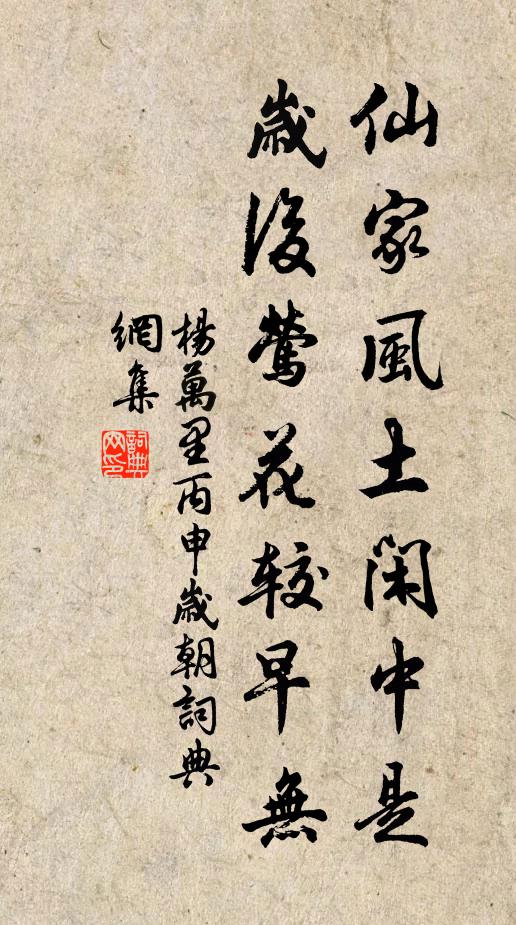 仙家風土閑中是
歲後鶯花較早無
楊萬里丙申歲朝詞典
網集
詞典網印